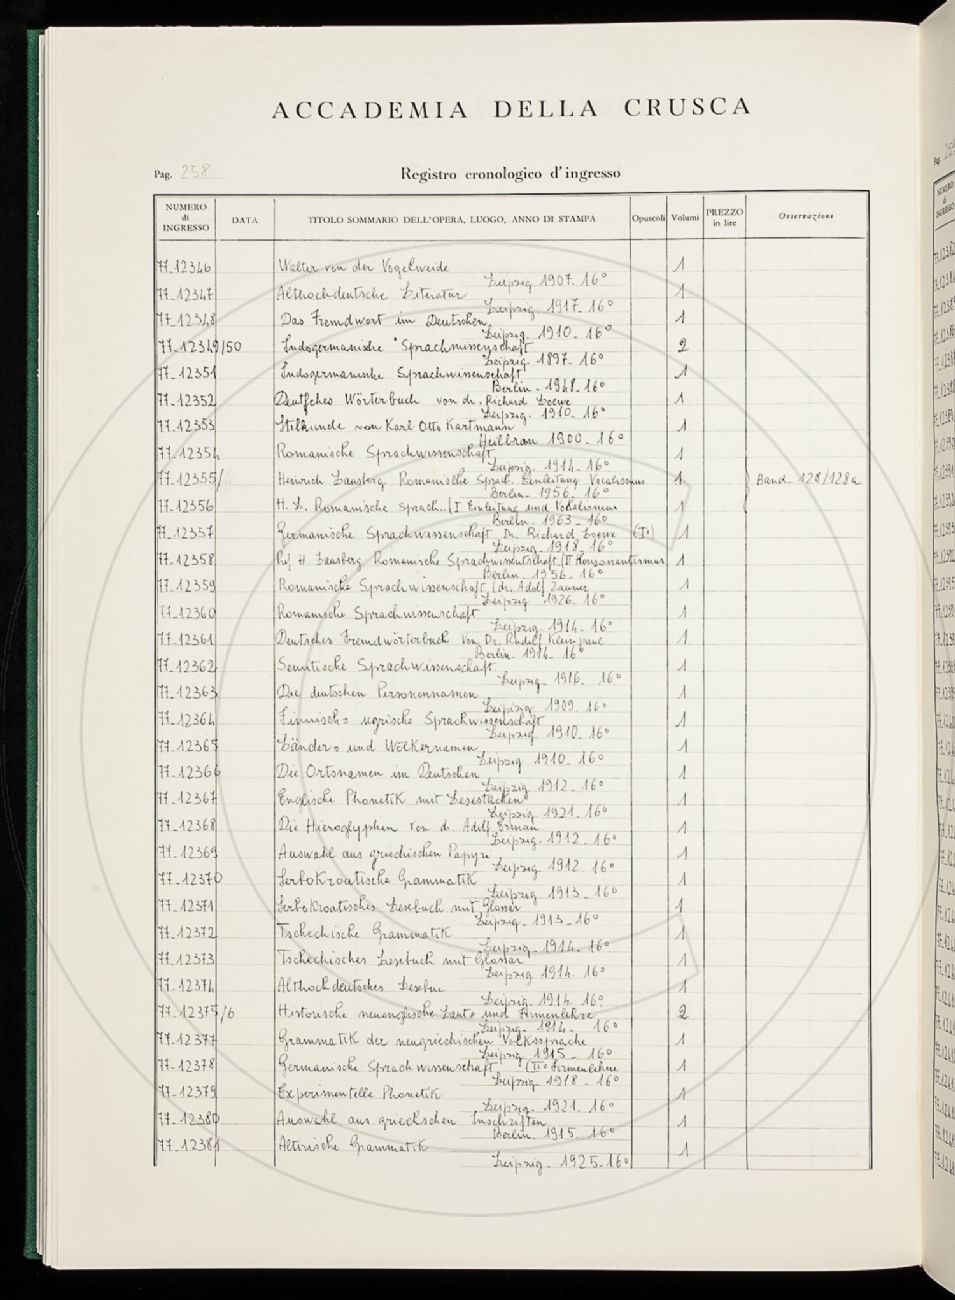 ACCADEMIA DELLA CRUSCA
Pag. 258 Registro cronologico d'ingresso
NUMERO di INGRESSO DATA TITOLO SOMMARIO DELL'OPERA, LUOGO, ANNO DI STAMPA Opuscoli Volumi PREZZO in lire Osservazioni
77-12346 Walter von der Vogelweide 1
Leipzig 1907. 16°
77-12347 Althochdeutsche Literatur 1
Leipzig 1917. 16°
77-12348 Das Fremdwort im Deutschen 1
Leipzig. 1910. 16°
77-12349/50 Indogermanische Sprachwissenschaft 2
Leipzig. 1897. 16°
77-12351 Indogermanische Sprachwissenschaft 1
Berlin. 1948. 16°
77-12352 Deutsches Wörterbuch von dr. Richard Loewe 1
Leipzig. 1910. 16°
77-12353 Stilkunde von Karl Otto Hartmann 1
Heilbron 1900. 16°
77-12354 Romanische Sprachwissenschaft 1
Leipzig. 1914. 16°
77-12355/ Heinrich Lausberg. Romanische Sprach. Einleitung Vocalismus 1 Band- 128/128a
Berlin. 1956. 16°
77-12356 H. L. Romanische Sprach.. (I Einleitung und Vokalismus 1
Berlin. 1963. 16°
77-12357 Germanische Sprachwissenschaft Dr. Richard Loewe (I°) 1
Leipzig. 1918. 16°
77-12358 Prof H. Lausberg Romanische Sprachwissenschaft (II Konsonantismus 1
Berlin. 1956. 16°
77-12359 Romanische Sprachwissenschaft (dr. Adolf Zauner 1
Leipzig 1926. 16°
77-12360 Romanische Sprachwissenschaft 1
Leipzig. 1914. 16°
77-12361 Deutsches Fremdwörterbuch von Dr. Rudolf Kleinpaul 1
Berlin. 1914. 16°
77-12362 Semitische Sprachwissenschaft 1
Leipzig. 1916. 16°
77-12363 Die deutschen Personennamen 1
Leipizig 1909. 16°
77-12364 Finnisch= ugrische Sprachwissenschaft 1
Leipzig. 1910. 16°
77-12365 Länder= und Wölkernamen 1
Leipzig 1910. 16°
77-12366 Die Ortsnamen im Deutschen 1
Leipzig 1912. 16°
77-12367 Englische Phonetik mit Lesestücken 1
Leipzig. 1921. 16°
77-12368 Die Hieroglyphen von dr. Adolf Erman 1
Leipzig. 1912. 16°
77-12369 Auswahl aus griechischen Papyri 1
Leipzig 1912. 16°
77-12370 Serbokroatische Grammatik 1
Leipzig 1913. 16°
77-12371 Serbokroatisches Lesebuch mit Glossar 1
Leipzig. 1913. 16°
77-12372 Tschechische Grammatik 1
Leipzig. 1914. 16°
77-12373 Tschechisches Lesebuch mit Glossar 1
Leipzig 1914. 16°
77-12374 Althochdeutsches 1
Leipzig. 1914. 16°
77-12375/6 Historische neuenglische Laut= und Formenlehre 2
Leipzig. 1914. 16°
77-12377 Grammatik der neugriechischen Volkssprache 1
Leipzig 1915. 16°
77-12378 Germanische Sprachwissenschaft (II° Formenlehre 1
Leipzig. 1918. 16°
77-12379 Experimentelle Phonetik 1
Leipzig. 1921. 16°
77-12380 Auswahl aus griechschen Inschriften 1
Berlin. 1915. 16°
77-12381 Altirische Grammatik 1
Leipzig. 1925. 16°